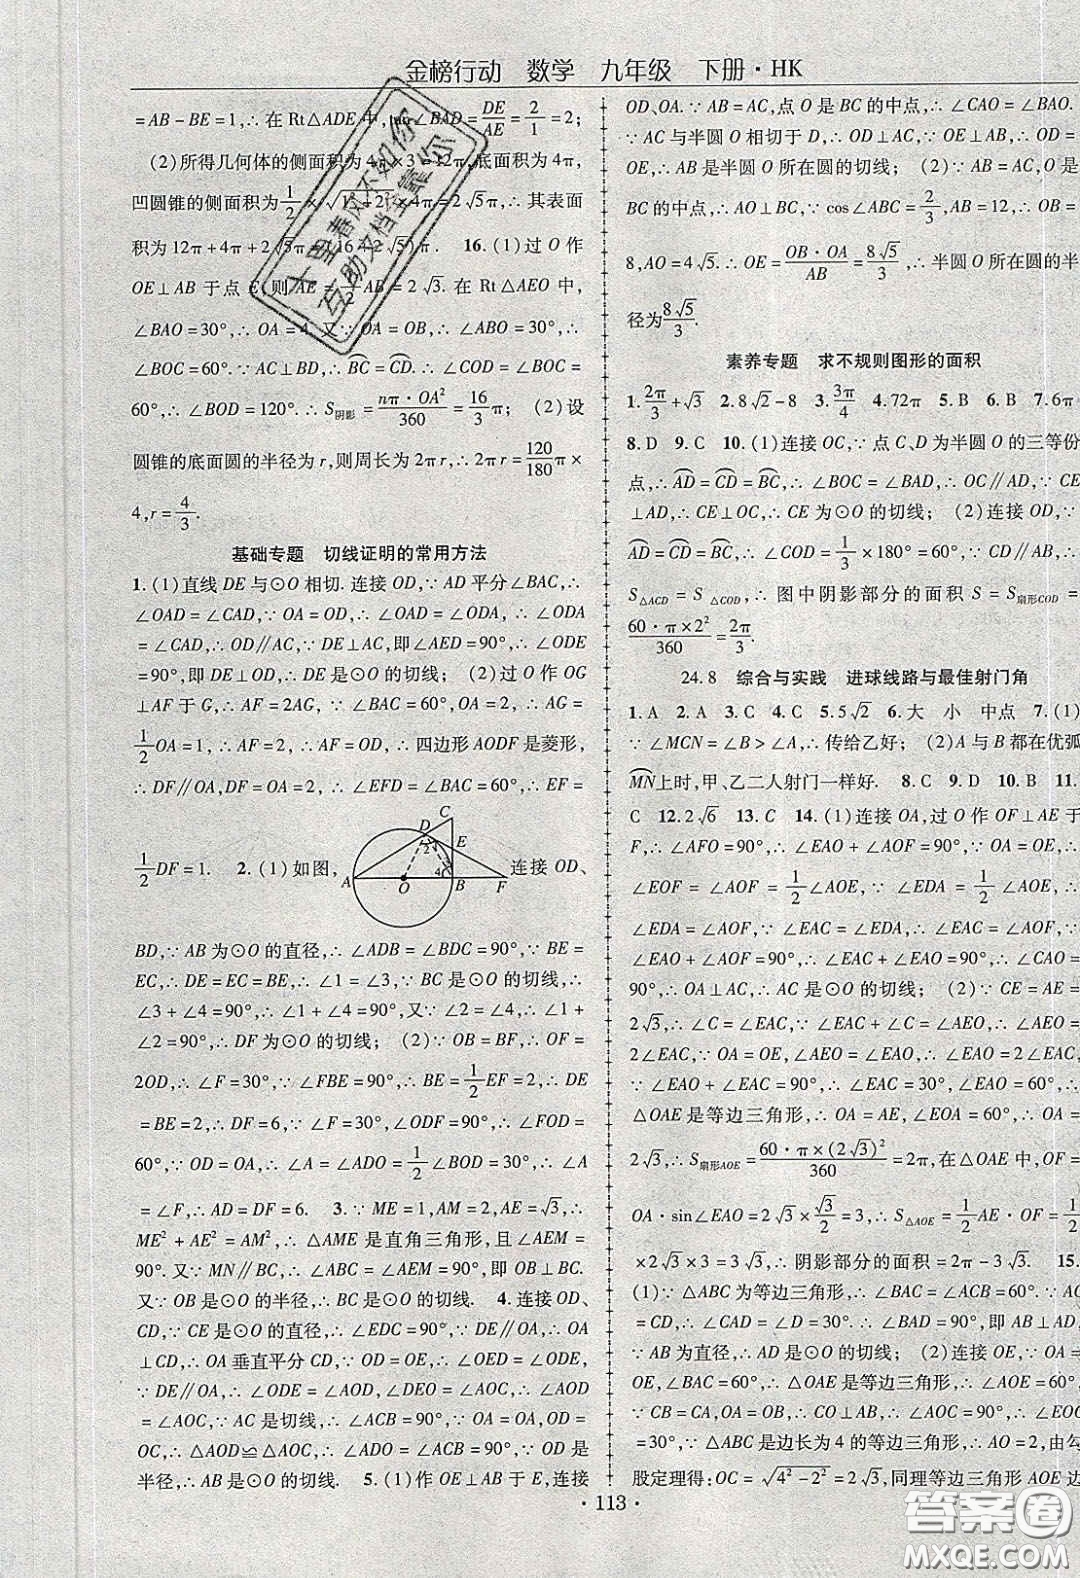 金榜行动 数学 九年级 下册·HK
=AB-BE=1,∴在Rt△ADE中,tan∠BAD=DE/AE=2/1=2;
(2)所得几何体的侧面积为4π×3=12π,底面积为4π,
凹圆锥的侧面积为1/2×√(1²+2²)×4π=2√5π,∴其表面
积为12π+4π+2√5π=(16+2√5)π. 16.(1)过O作
OE⊥AB于点E,则AE=1/2AB=2√3.在Rt△AEO中,
∠BAO=30°,∴OA=4.又∵OA=OB,∴∠ABO=30°,∴
∠BOC=60°.∵AC⊥BD,∴BC=CD.∴∠COD=∠BOC=
60°,∴∠BOD=120°.∴S阴影=nπ·OA²/360=16/3π; (2)设
圆锥的底面圆的半径为r,则周长为2πr,∴2πr=120/180π×
4,r=4/3.
基础专题 切线证明的常用方法
1.(1)直线DE与⊙O相切.连接OD,∵AD平分∠BAC,∴
∠OAD=∠CAD,∵OA=OD,∴∠OAD=∠ODA,∴∠ODA
=∠CAD,∴OD∥AC,∵DE⊥AC,即∠AED=90°,∴∠ODE
=90°,即DE⊥OD,∴DE是⊙O的切线; (2)过O作OG
⊥AF于G,∴AF=2AG,∵∠BAC=60°,OA=2,∴AG=
1/2OA=1,∴AF=2,∴AF=OD,∴四边形AODF是菱形,
∴DF∥OA,DF=OA=2,∴∠EFD=∠BAC=60°,∴EF=
1/2DF=1. 2.(1)如图,
C
D
E
2
4
A
O
B
F
连接OD、
BD,∵AB为⊙O的直径,∴∠ADB=∠BDC=90°,∵BE=
EC,∴DE=EC=BE,∴∠1=∠3,∵BC是⊙O的切线,∴
∠3+∠4=90°,∴∠1+∠4=90°,又∵∠2=∠4,∴∠1+
∠2=90°,∴DF为⊙O的切线; (2)∵OB=BF,∴OF=
2OD,∴∠F=30°,∵∠FBE=90°,∴BE=1/2EF=2,∴DE
=BE=2,∴DF=6,∵∠F=30°,∠ODF=90°,∴∠FOD=
60°,∵OD=OA,∴∠A=∠ADO=1/2∠BOD=30°,∴∠A
=∠F,∴AD=DF=6. 3.∵ME=1,AM=2,AE=√3,∴
ME²+AE²=AM²,∴△AME是直角三角形,且∠AEM=
90°.又∵MN∥BC,∴∠ABC=∠AEM=90°,即OB⊥BC.
又∵OB是⊙O的半径,∴BC是⊙O的切线. 4.连接OD、
CD,∵CE是⊙O的直径,∴∠EDC=90°,∵DE∥OA,∴OA
⊥CD,∴OA垂直平分CD,∵OD=OE,∴∠OED=∠ODE,
∵DE∥OA,∴∠ODE=∠AOD,∠DEO=∠AOC,∴∠AOD
=∠AOC,∵AC是切线,∴∠ACB=90°,∵OA=OA,OD=
OC,∴△AOD≌△AOC,∴∠ADO=∠ACB=90°,∵OD是
半径,∴AB是⊙O的切线. 5.(1)作OE⊥AB于E,连接
OD、OA.∵AB=AC,点O是BC的中点,∴∠CAO=∠BAO.
∵AC与半圆O相切于D,∴OD⊥AC,∵OE⊥AB,∴OD=
OE,∴AB是半圆O所在圆的切线; (2)∵AB=AC,O是
BC的中点,∴AO⊥BC,∵cos∠ABC=2/3,AB=12,∴OB=
8,AO=4√5.∴OE=OB·OA/AB=8√5/3,∴半圆O所在圆的半
径为8√5/3.
素养专题 求不规则图形的面积
1.2π/3+√3 2.8√2-8 3.3π/4 4.72π 5.B 6.B 7.6π
8.D 9.C 10.(1)连接OC,∵点C、D为半圆O的三等份
点,∴AD=CD=BC,∴∠BOC=∠BAD,∴OC∥AD,∵CE
⊥AD,∴CE⊥OC,∴CE为⊙O的切线; (2)连接OD,∵
AD=CD=BC,∴∠COD=1/3×180°=60°,∵CO∥AD,∴
S△ACD=S△COD,∴图中阴影部分的面积S=S扇形COD=
60·π×2²/360=2π/3.
24.8 综合与实践 进球线路与最佳射门角
1.A 2.A 3.C 4.C 5.5√2 6.大 小 中点 7.(1)
∵∠MCN=∠B>∠A,∴传给乙好; (2)A与B都在优弧
MN上时,甲、乙二人射门一样好. 8.C 9.D 10.B 11.
C 12.2√6 13.C 14.(1)连接OA,过O作OF⊥AE于
F,∴∠AFO=90°,∴∠EAO+∠AOF=90°,∵OA=OE,∴
∠EOF=∠AOF=1/2∠AOE,∵∠EDA=1/2∠AOE,∴
∠EDA=∠AOF,∵∠EAC=∠EDA,∴∠EAC=∠AOF,∴
∠EAO+∠EAC=90°,∵∠EAC+∠EAO=∠CAO,∴∠CAO=
90°,∴OA⊥AC,∴AC是⊙O的切线; (2)∵CE=AE=
2√3,∴∠C=∠EAC,∵∠EAC+∠C=∠AEO,∴∠AEO=
2∠EAC,∵OA=OE,∠AEO=∠EAO,∴∠EAO=2∠EAC,
∵∠EAO+∠EAC=90°,∴∠EAC=30°,∠EAO=60°,∴
△OAE是等边三角形,∴OA=AE,∠EOA=60°,∴OA=
2√3,∴S扇形AOE=60·π×(2√3)²/360=2π,在△OAE中,OF=
OA·sin∠EAO=2√3×√3/2=3,∴S△AOE=1/2AE·OF=1/2
×2√3×3=3√3,∴阴影部分的面积=2π-3√3. 15.
(1)∵△ABC为等边三角形,∴∠BAC=∠ACB=60°.∵
AC=CD,∴∠CAD=∠D=30°.∴∠BAD=90°,即AB⊥AD,
∵AB为直径,∴AD是⊙O的切线; (2)连接OE,∵OA=
OE,∠BAC=60°,∴△OAE是等边三角形,∴∠AOE=60°,
∵CB=CA,OA=OB,∴CO⊥AB,∴∠AOC=90°,∴∠EOC
=30°,∵△ABC是边长为4的等边三角形,∴AO=2,由勾
股定理得:OC=√(4²-2²)=2√3,同理等边三角形AOE边
·113·
十里春风不如你
互助文档全靠你
答案圈
MXQE.COM